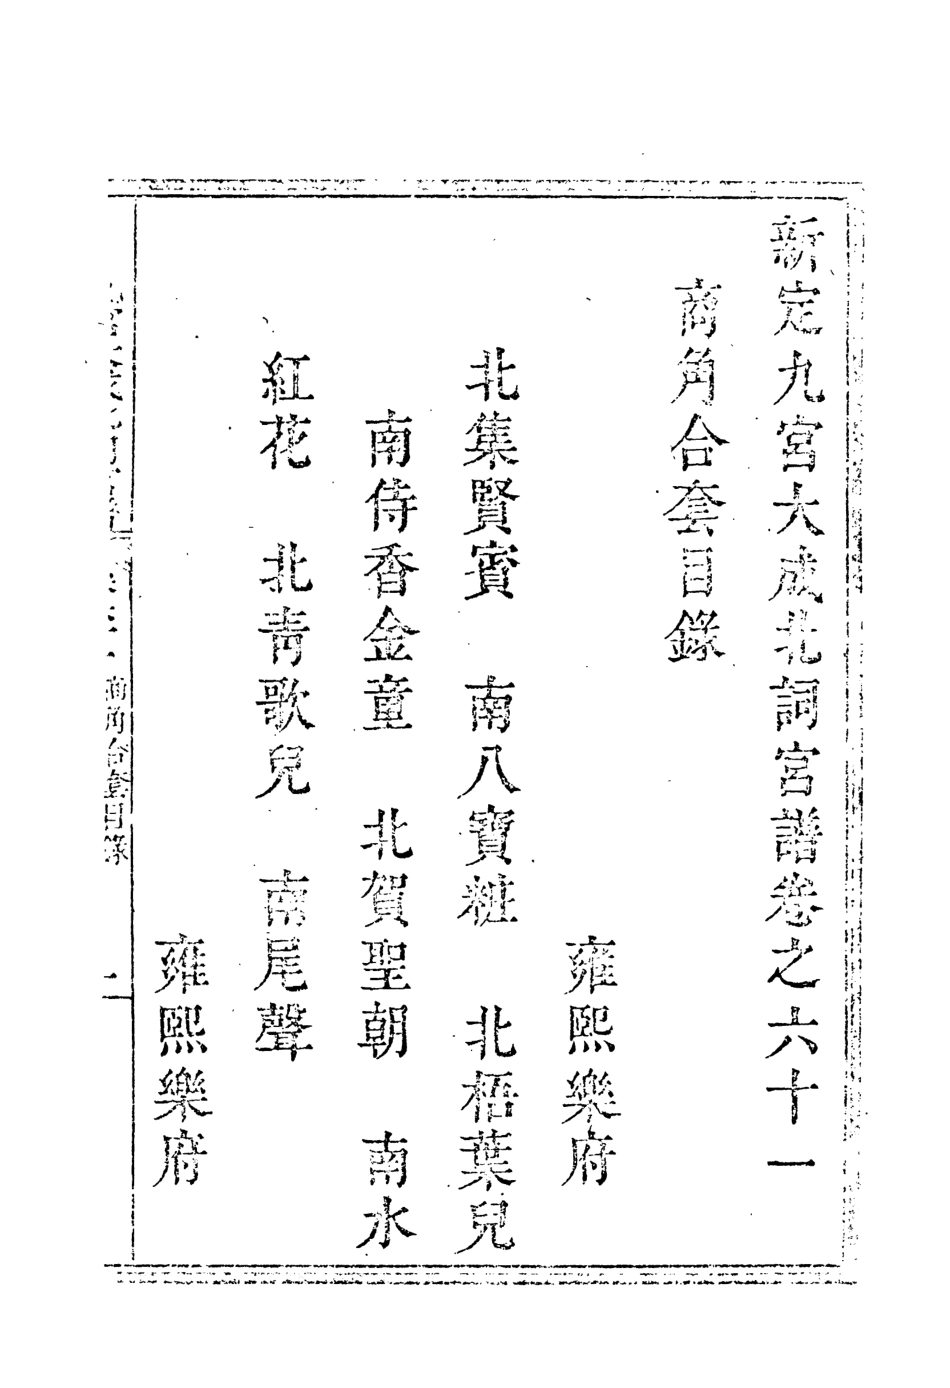 新定九宮大成北詞宮譜卷之六十一
商角合套目錄
雍熙樂府
北集賢賓　南八寶粧　北梧葉兒
南侍香金童　北賀聖朝　南水
紅花　北青歌兒　南尾聲
雍熙樂府
商角合套目錄